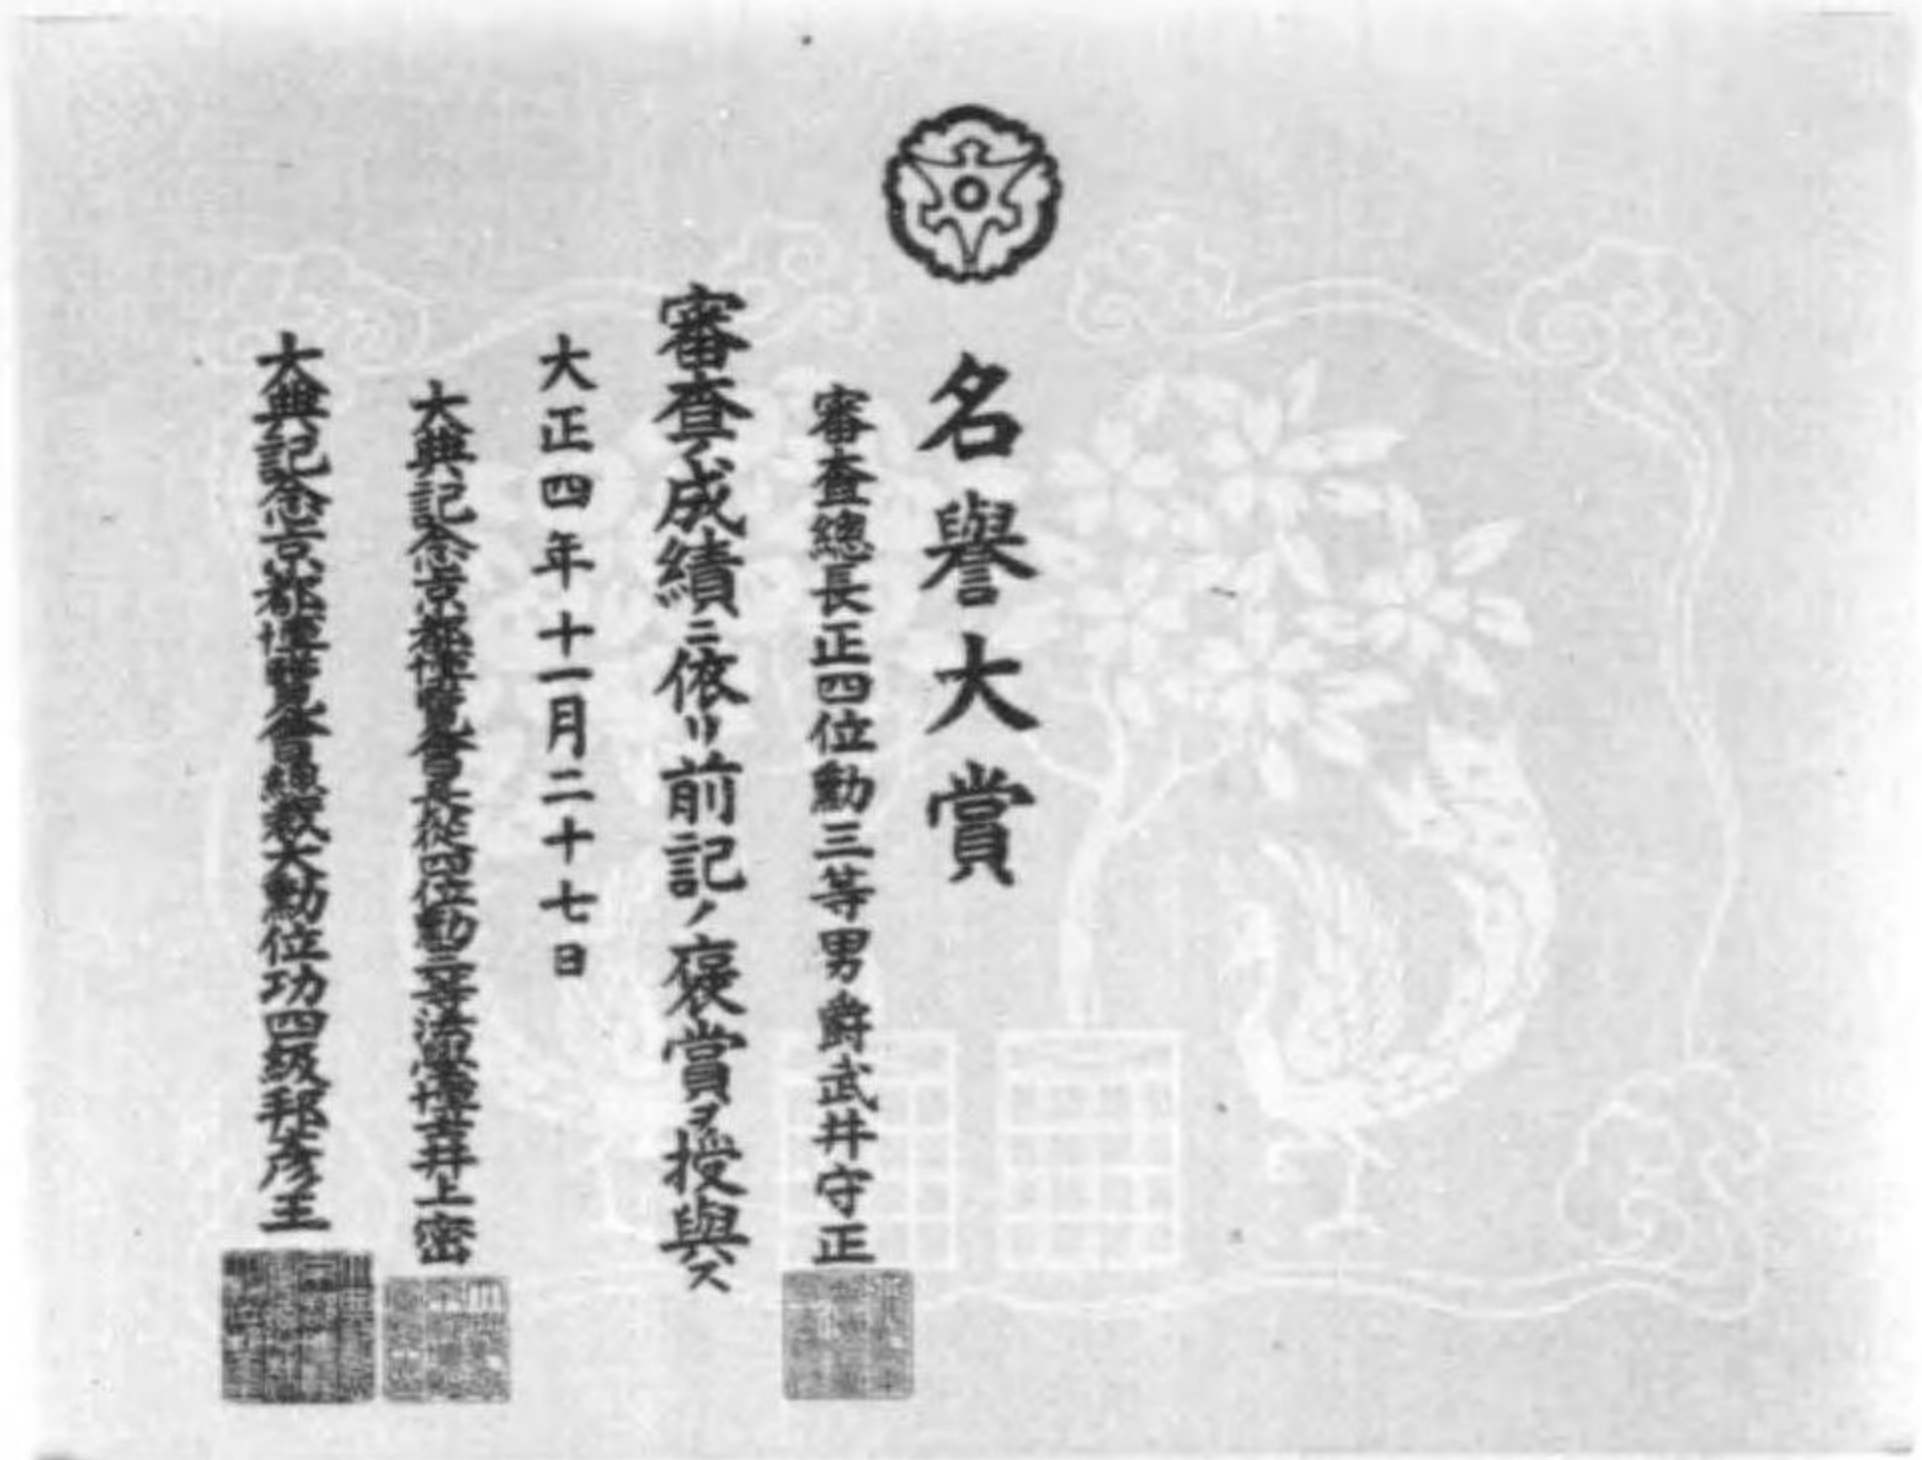 名譽大賞
審査總長正四位勳三等男爵武井守正
審査ノ成績ニ依リ前記ノ褒賞ヲ授與ス
大正四年十一月二十七日
大典記念京都博覽會長從四位勳三等法學博士井上密
大典記念京都博覽會總裁大勳位功四級邦彦王